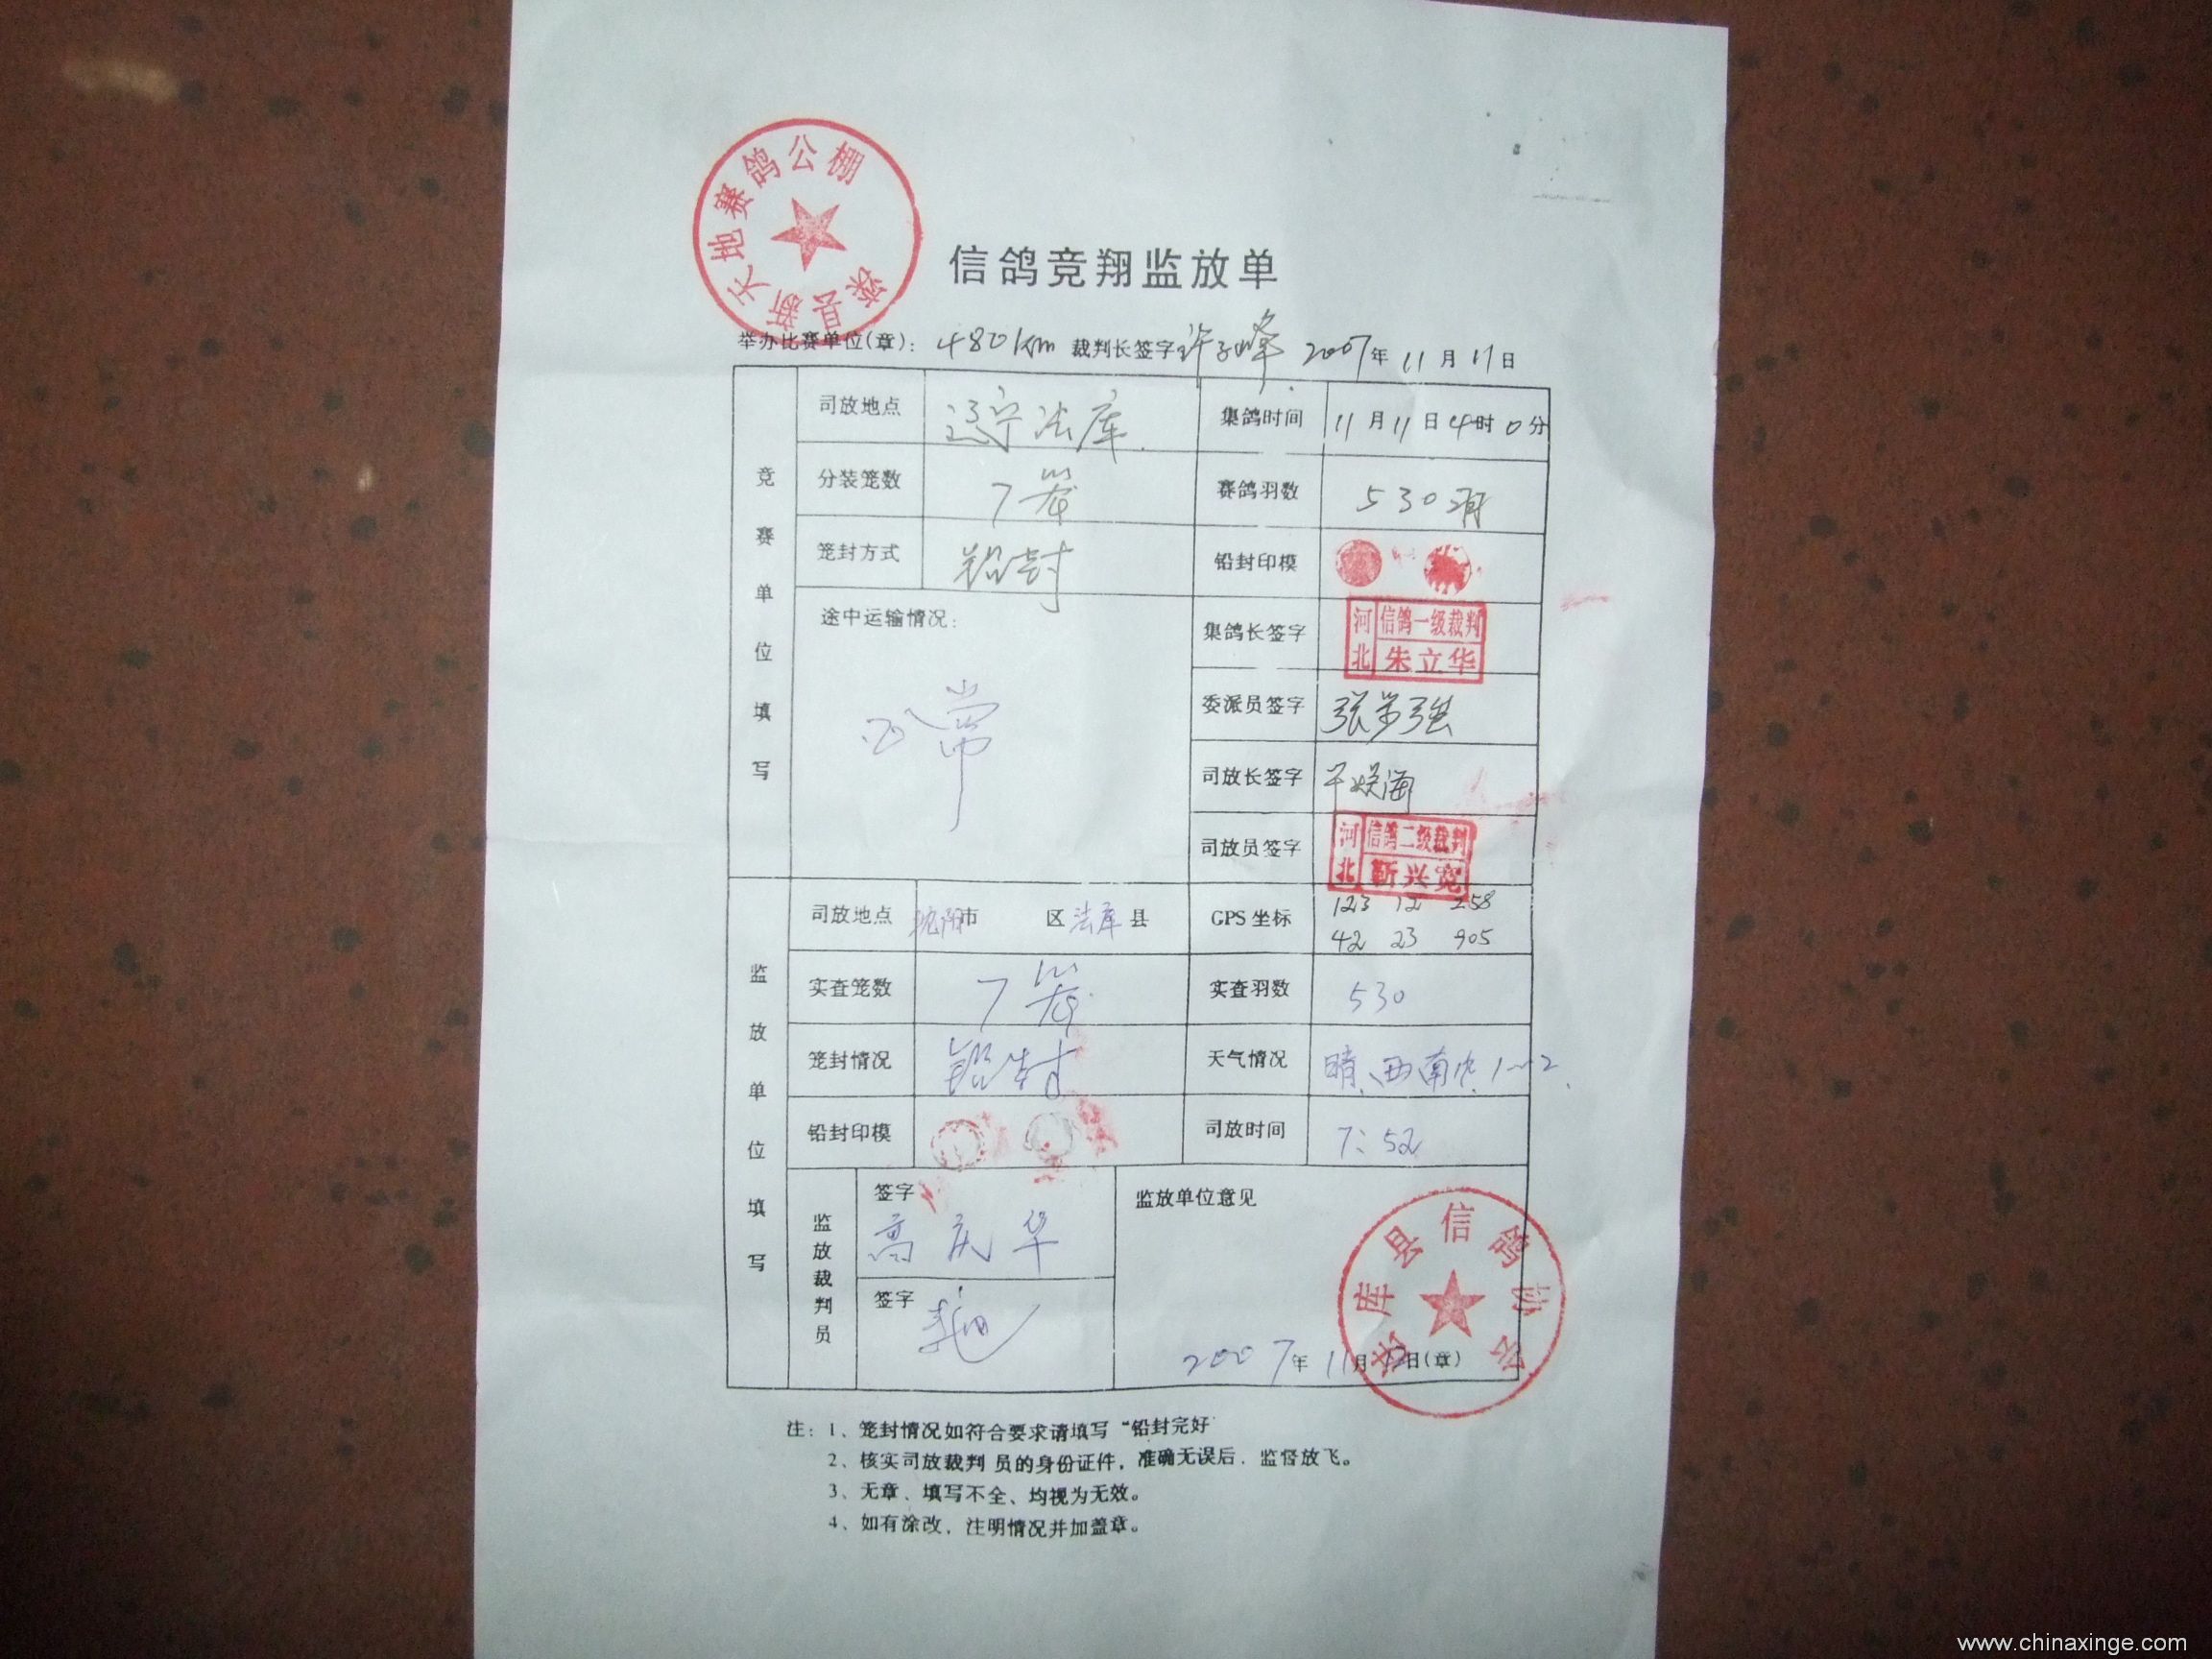 滦县新天地赛鸽公棚
信鸽竞翔监放单
举办比赛单位(章): 480km 裁判长签字 2007年11月11日
竞赛单位填写
司放地点 辽宁法库 集鸽时间 11月11日4时0分
分装笼数 7笼 赛鸽羽数 530羽
笼封方式 铅封 铅封印模
途中运输情况: 正常
集鸽长签字 河北 信鸽一级裁判 朱立华
委派员签字
司放长签字
司放员签字 河北 信鸽二级裁判 靳兴宽
监放单位填写
司放地点 沈阳市 区 法库县 GPS坐标 123 12 258
42 23 905
实查笼数 7笼 实查羽数 530
笼封情况 铅封 天气情况 晴、西南风1-2
铅封印模 司放时间 7:52
监放裁判员
签字 高庆华
签字
监放单位意见
法库县信鸽协会
2007年11月12日(章)
注: 1、笼封情况如符合要求请填写“铅封完好
2、核实司放裁判 员的身份证件，准确无误后．监督放飞。
3、无章、填写不全、均视为无效。
4、如有涂改．注明情况并加盖章。
www.chinaxinge.com